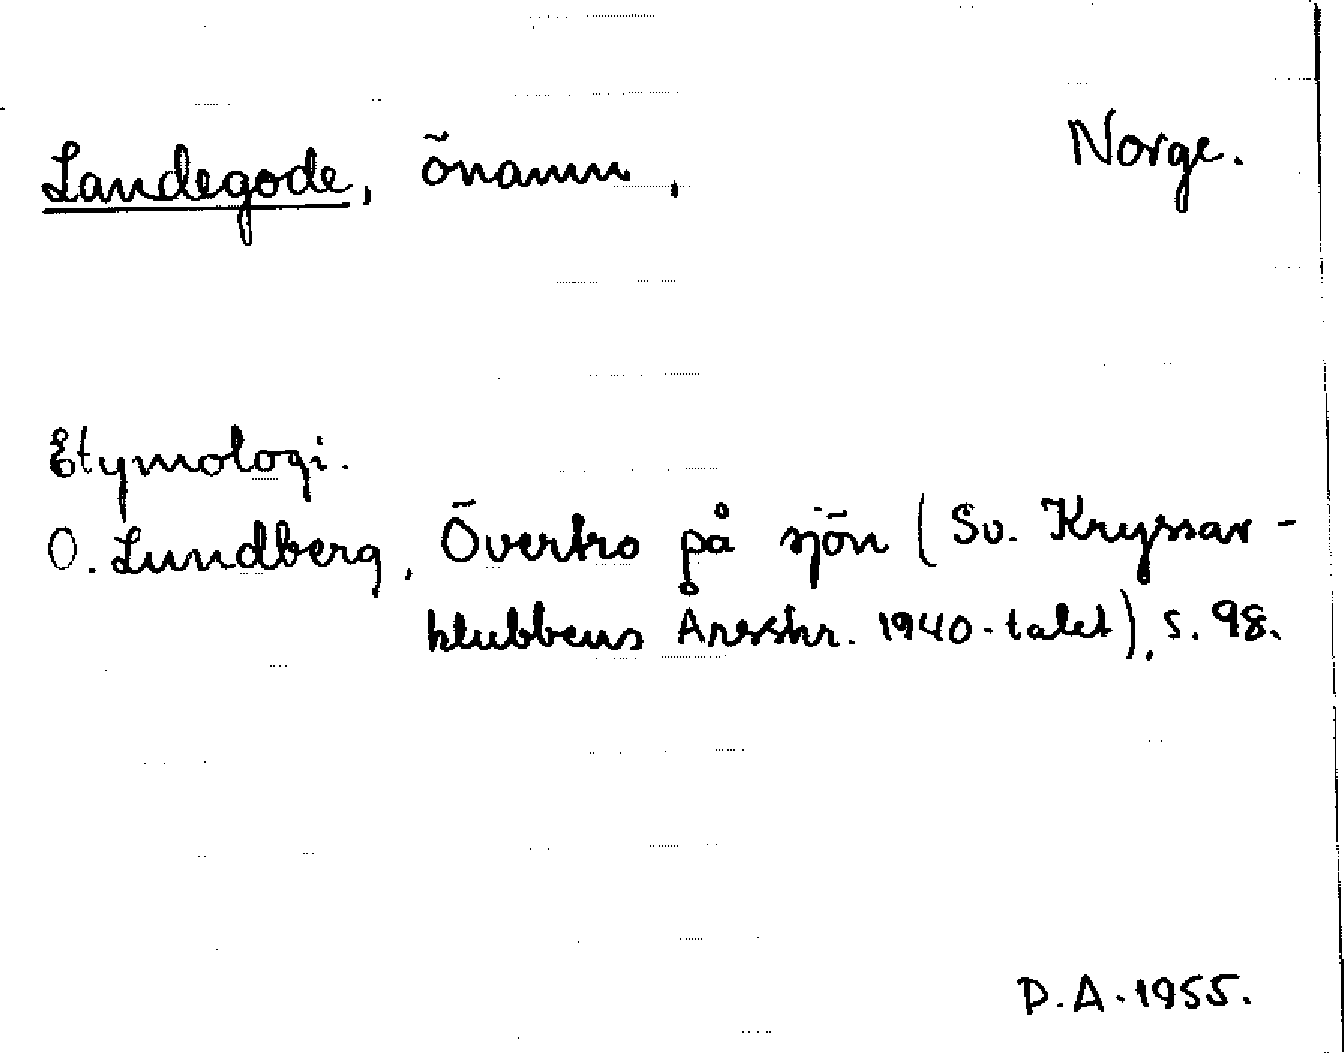 Landegode, önamn, Norge.
Etymologi.
O. Lundberg, Övertro på sjön (Sv. Kryssar-
klubbens Årsskr. 1940-talet), s. 98.
D.A. 1955.